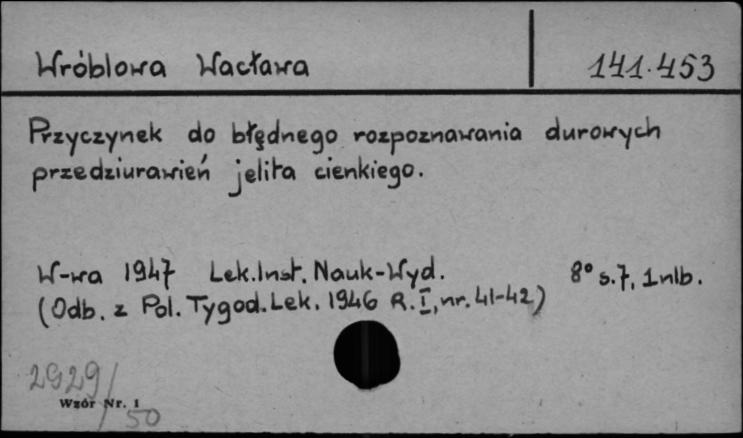 Wróblowa Wacława 141.453
Przyczynek do błędnego rozpoznawania durowych
przedziurawień jelita cienkiego.
W-wa 1947 Lek.Inst. Nauk-Wyd. 8° s.7, 1nlb.
(Odb. z Pol. Tygod. Lek. 1946 R. I, nr. 41-42)
2929/50
Wzór Nr. 1